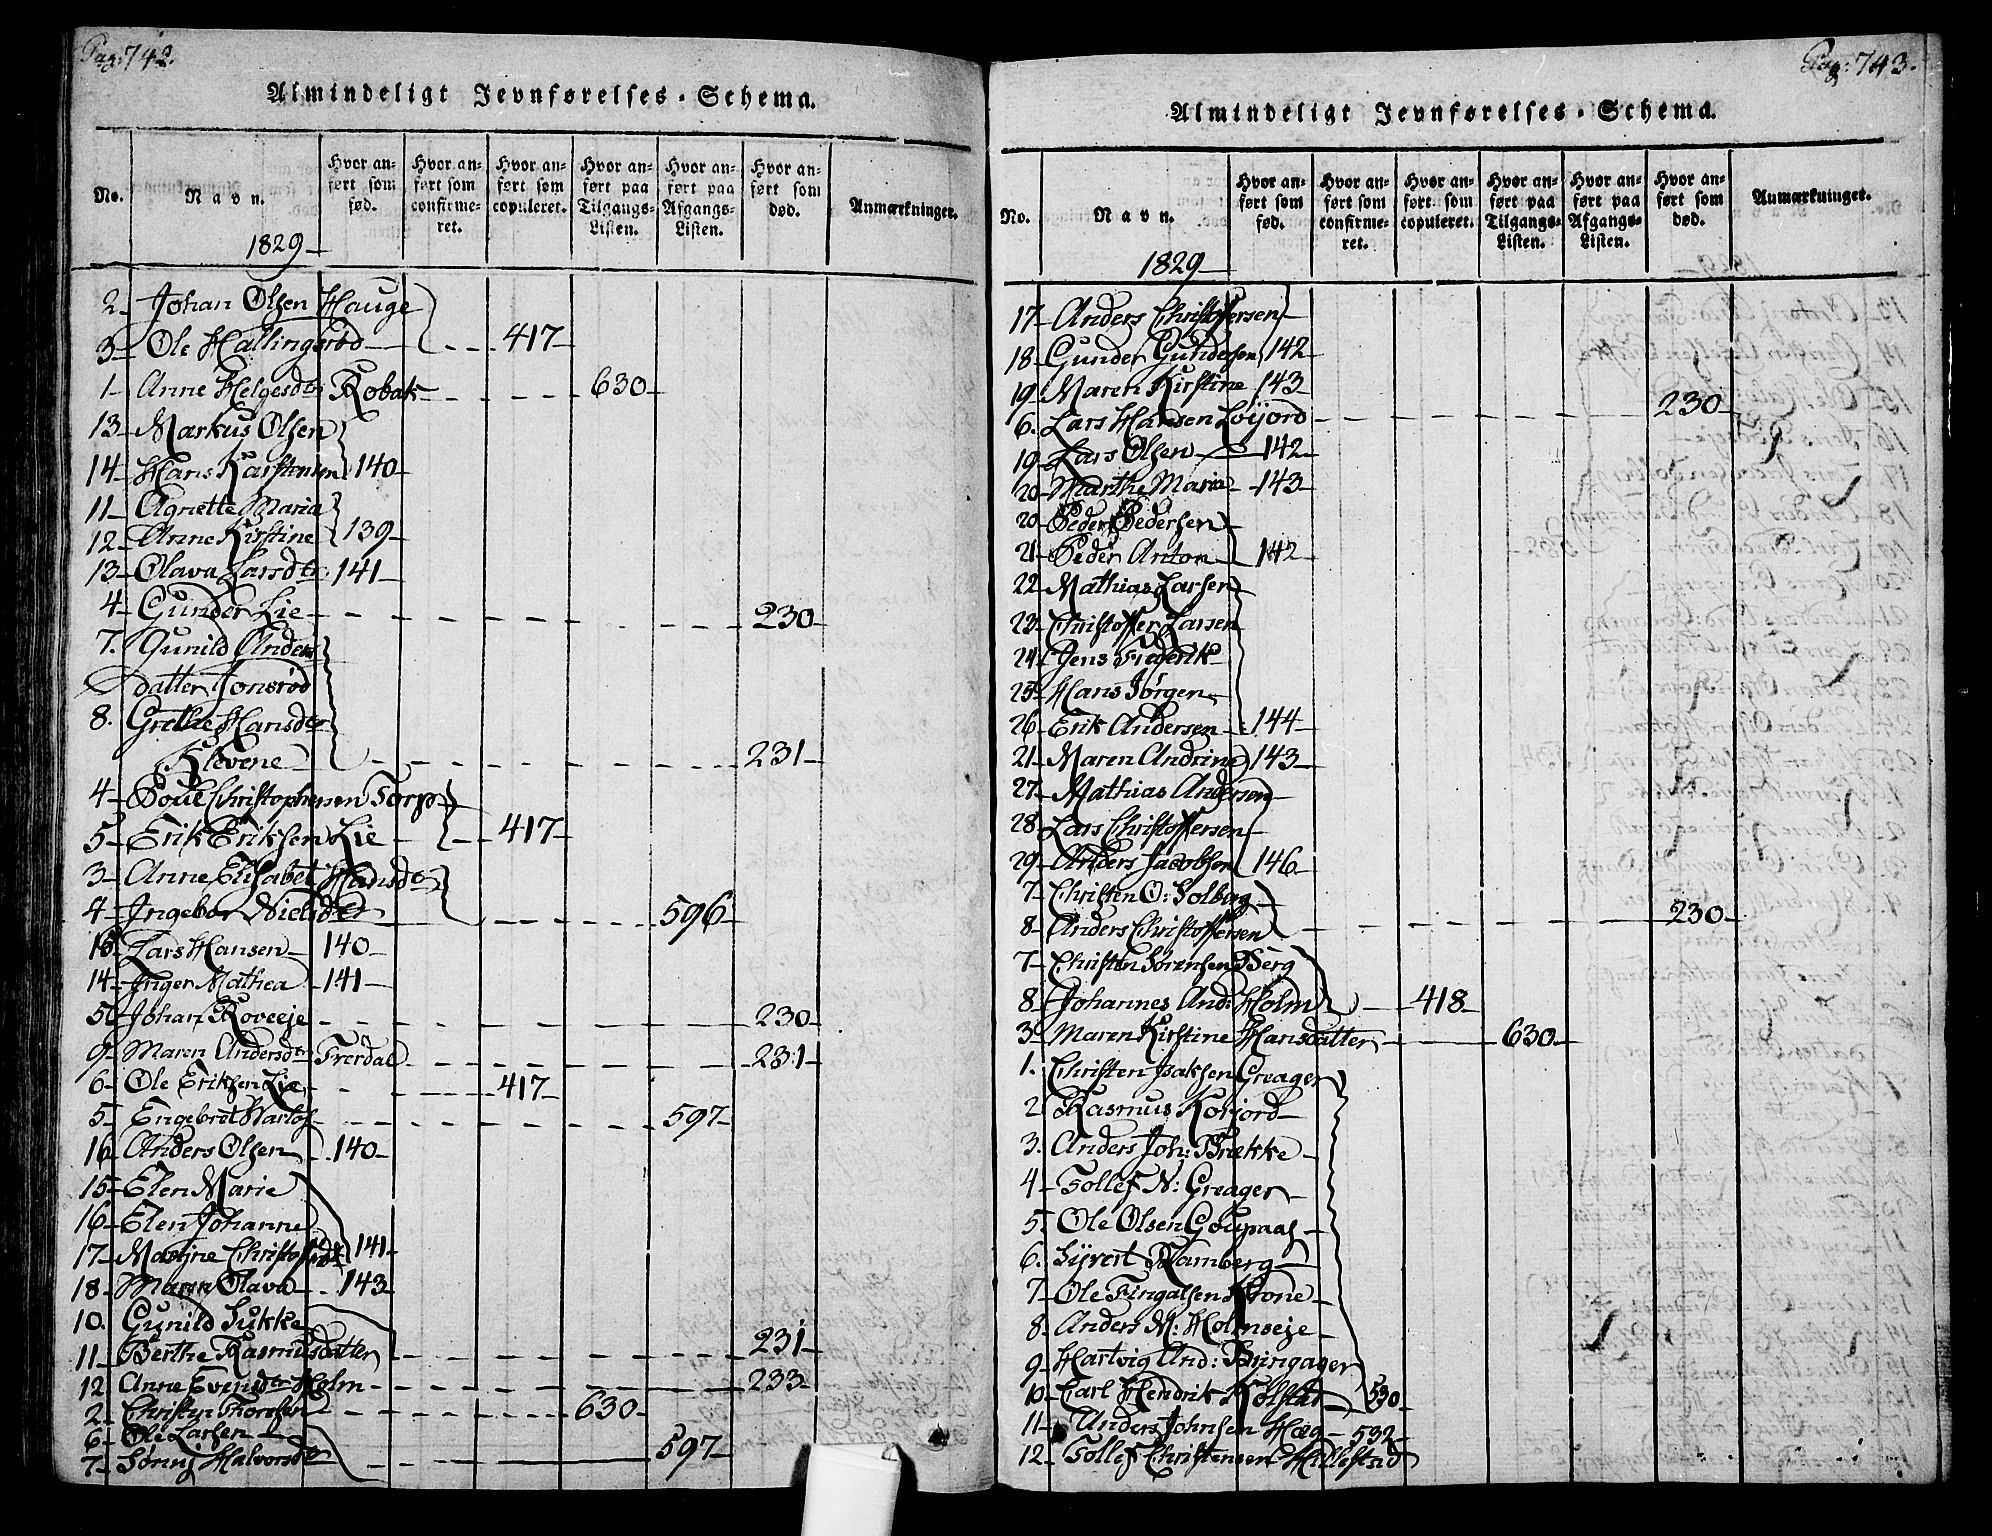 Pag: 742.
Almindeligt Jevnførelses-Schema.
No.
Navn.
Hvor anført som fød.
Hvor anført som confirmeret.
Hvor anført som copuleret.
Hvor anført paa Tilgangs-Listen.
Hvor anført paa Afgangs-Listen.
Hvor anført som død.
Anmærkninger.
1829
2 Johan Olsen Hauge
3 Ole Hallingsrød 417
1 Anne Helgesdtr Robak 630
13 Markus Olsen
14 Hans Karstensen 140
11 Agnette Maria
12 Anne Kirstine 139
13 Olava Larsdtr: 141
4 Gunder Lie 230
7. Gunild Anders
datter Jonsrød
8. Grethe Hansdtr
Klevene 231
4 Poul Christophersen Torp
5 Erik Eriksen Lie 417
3 Anne Elisabet Hansdtr
4 Ingebor Nielsdtr 596
15 Lars Hansen 140
14 Inger Mathea 141
5 Johan Roveeje 230
9 Maren Andersdtr Frerdal 231
6 Ole Eriksen Lie 417
5 Engebret 597
16 Anders Olsen 140
15 Elen Marie
16 Elen Johanne
17 141
18 Maren Olava 143
10. Gunild Sukke
11 Berthe Rasmusdatter 231
12 Anne Evensdtr Holm 233
2 630
6 Ole Larsen
7 Halvorsdtr 597
Pag: 743.
Almindeligt Jevnførelses-Schema.
No.
Navn.
Hvor anført som fød.
Hvor anført som confirmeret.
Hvor anført som copuleret.
Hvor anført paa Tilgangs-Listen.
Hvor anført paa Afgangs-Listen.
Hvor anført som død.
Anmærkninger.
1829
17 Anders Christoffersen
18 Gunder Gundersen 142
19 Maren Kirstine 143
6. Lars Hansen Løijord 230
19 Lars Olsen 142
20 Marthe Maria 143
20 Peder Pedersen
21 Peder Anton 142
22 Mathias Larsen
23 Christoffer Larsen
24 Jens Frederik
25 Hans Jørgen
26 Erik Andersen 144
21 Maren Andrine 143
27 Mathias Andersen
28 Lars Christoffersen
29 Anders Jacobsen 146
7 Christen O: Solberg
8 Anders Christoffersen 230
7 Christen Sørensen Berg
8 Johannes And: Holm 418
3 Maren Kirstine Hansdatter 630
1. Christen Isaksen Greager
2 Rasmus Korjord
3. Anders Joh: Brække
4 Tollef N: Greager
5. Ole Olsen
6. Sijvert Ramberg
7 Ole Fingalsen Krone
8. Anders M: Holmseje
9 Hartvig And: Bringager
10 Carl Hendrik Kolstad 530
11 Anders Johnsen Hæg 532
12. Tollef Christensen Hillestad